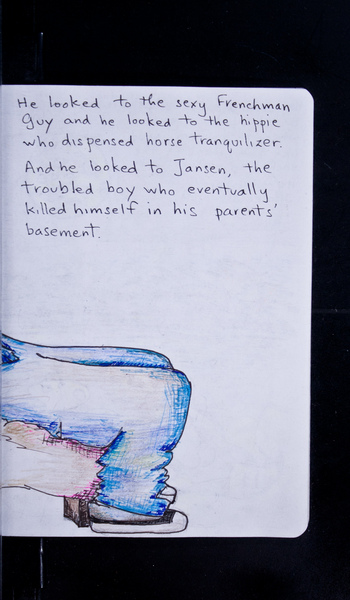 He looked to the sexy Frenchman
Guy and he looked to the hippie
who dispensed horse tranquilizer.
And he looked to Jansen, the
troubled boy who eventually
killed himself in his parents'
basement.